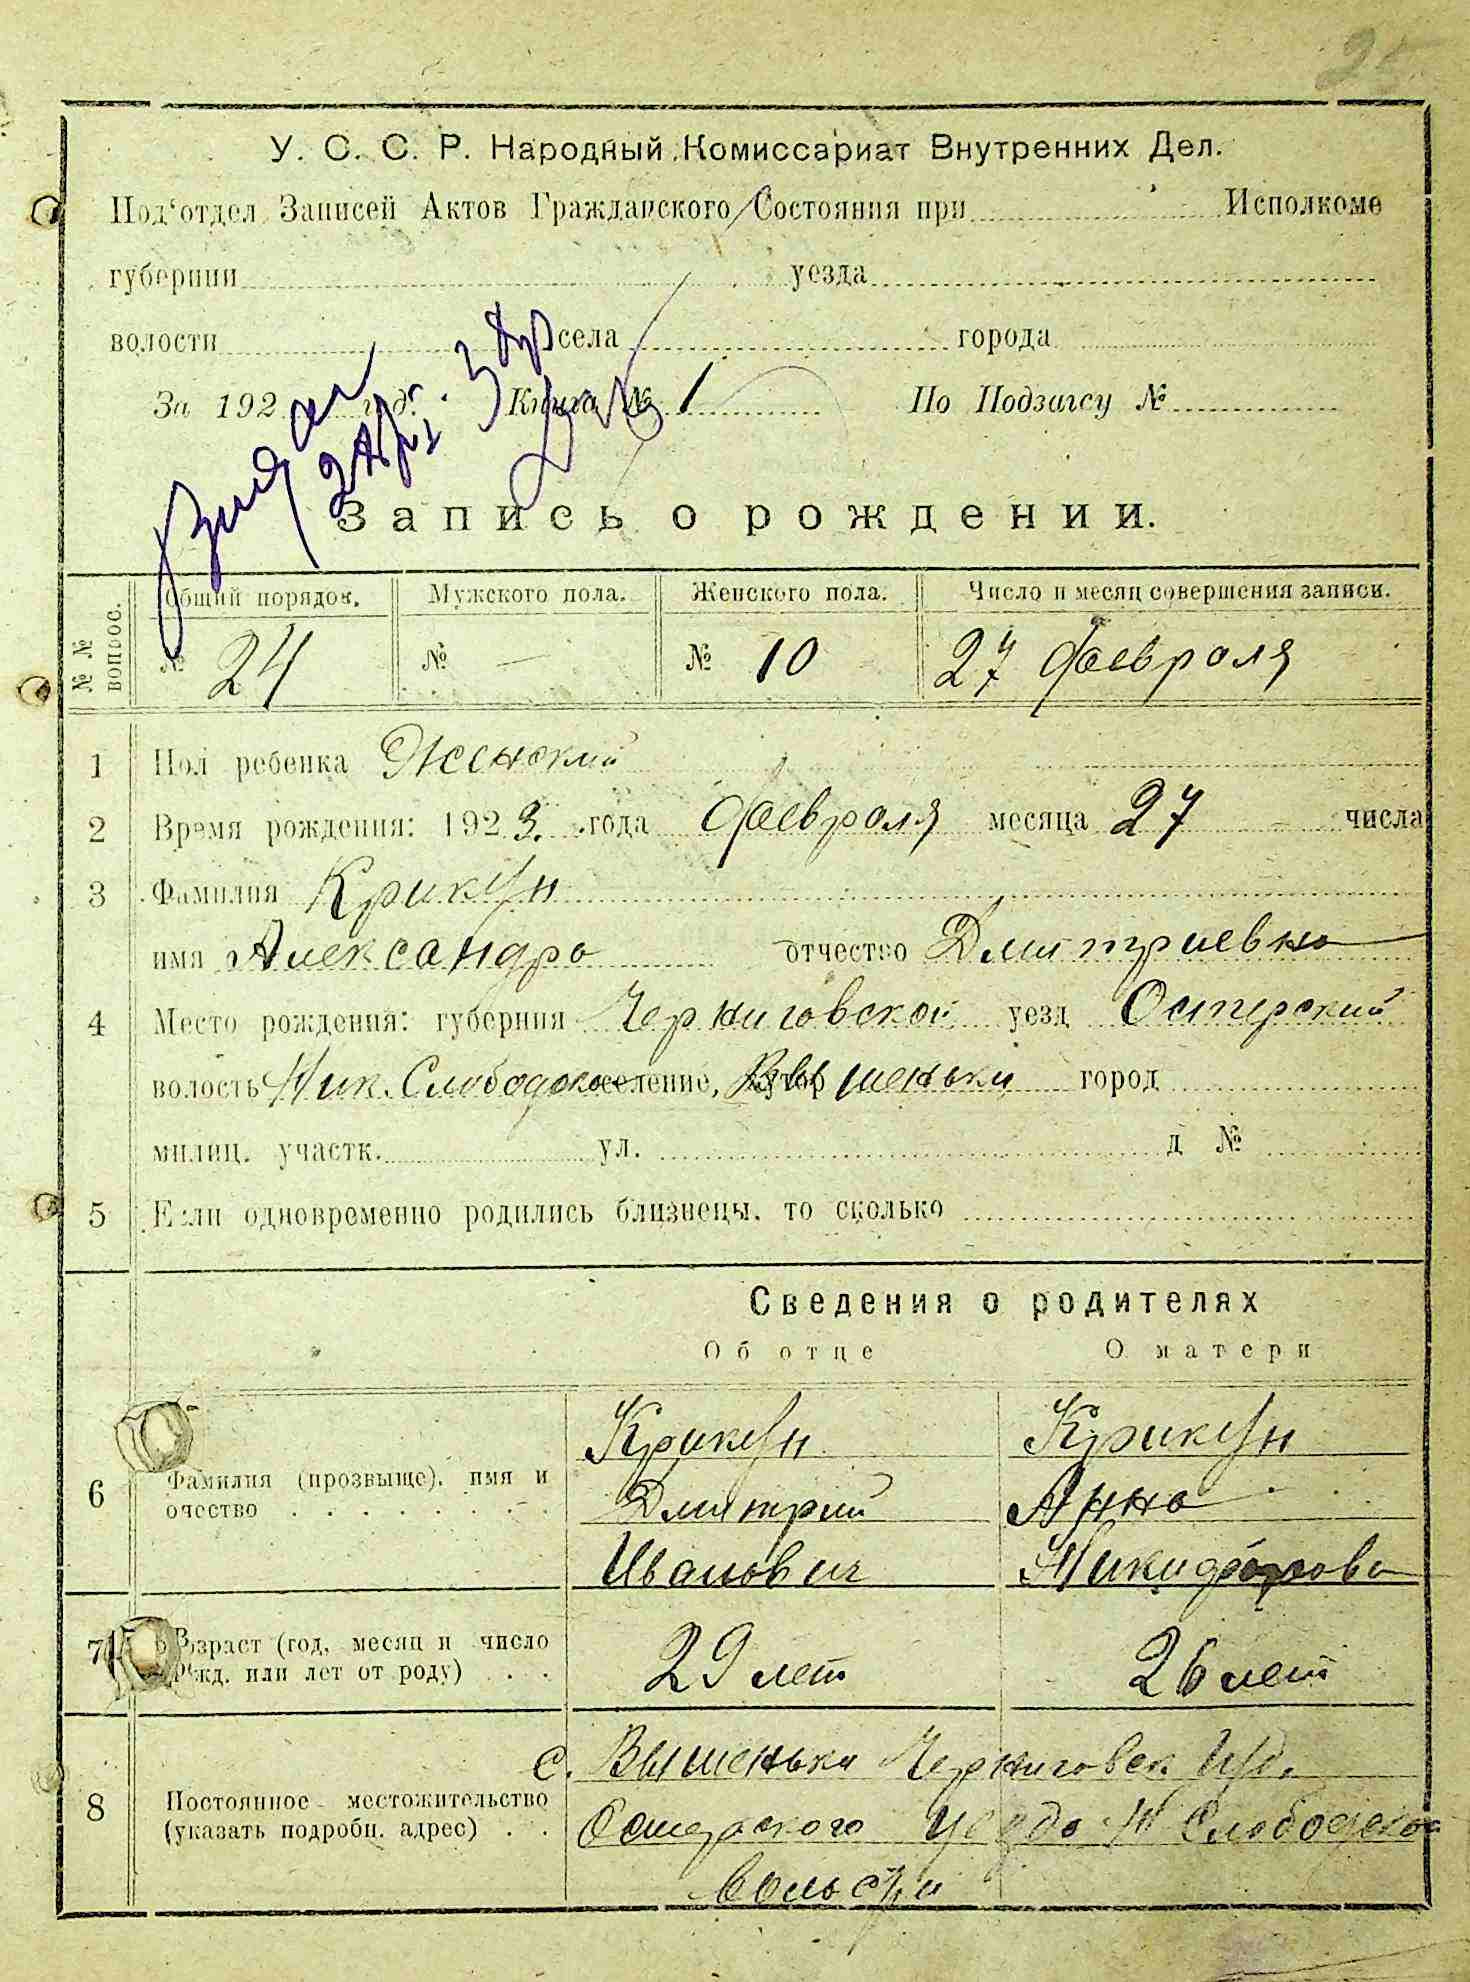 25
У. С. С. Р. Народный Комиссариат Внутренних Дел.
Под'отдел Записей Актов Гражданского Состояния при Исполкоме
губернии уезда
волости села города
За 192 год. Книга № 1 По Подзагсу №
Запись о рождении.
№ № вопрос. Общий порядок. Мужского пола. Женского пола. Число и месяц совершения записи.
№ 24 № — № 10 27 февраля
1 Пол ребенка Женский
2 Время рождения: 1923. года февраля месяца 27 числа
3 Фамилия Крикун
имя Александра отчество Дмитриевна
4 Место рождения: губерния Черниговской уезд Остерский
волость Ник. Слободск селение, хутор Вышеньки город
милиц. участк. ул. д №
5 Если одновременно родились близнецы, то сколько
Сведения о родителях
Об отце О матери
6 Фамилия (прозвыще), имя и очество
Крикун Крикун
Дмитрий Анна
Иванович Никифорова
7 Возраст (год, месяц и число рожд. или лет от роду) 29 лет 26 лет
8 Постоянное местожительство (указать подробн. адрес)
с. Вышеньки Черниговск губ.
Остерского уезда Н Слободской
волости